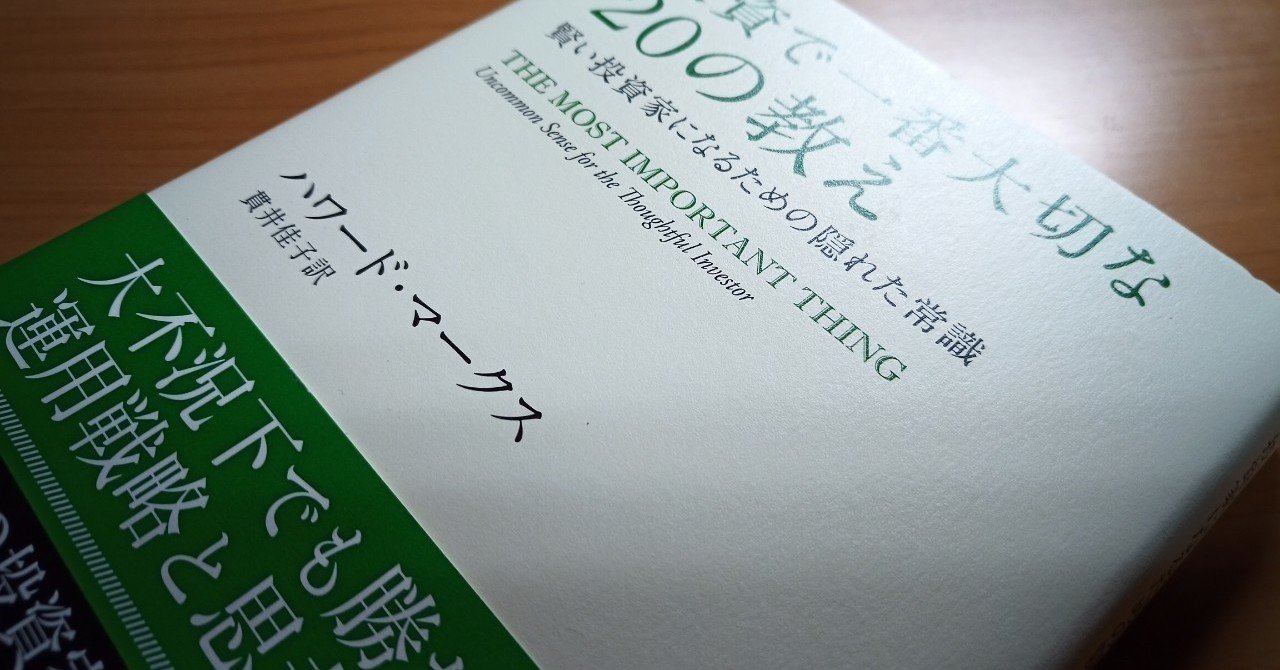 資で一番大切な
20の教え
賢い投資家になるための隠れた常識
THE MOST IMPORTANT THING
Uncommon Sense for the Thoughtful Investor
ハワード・マークス
貫井佳子訳
大不況下でも勝
運用戦略と思
の投資家